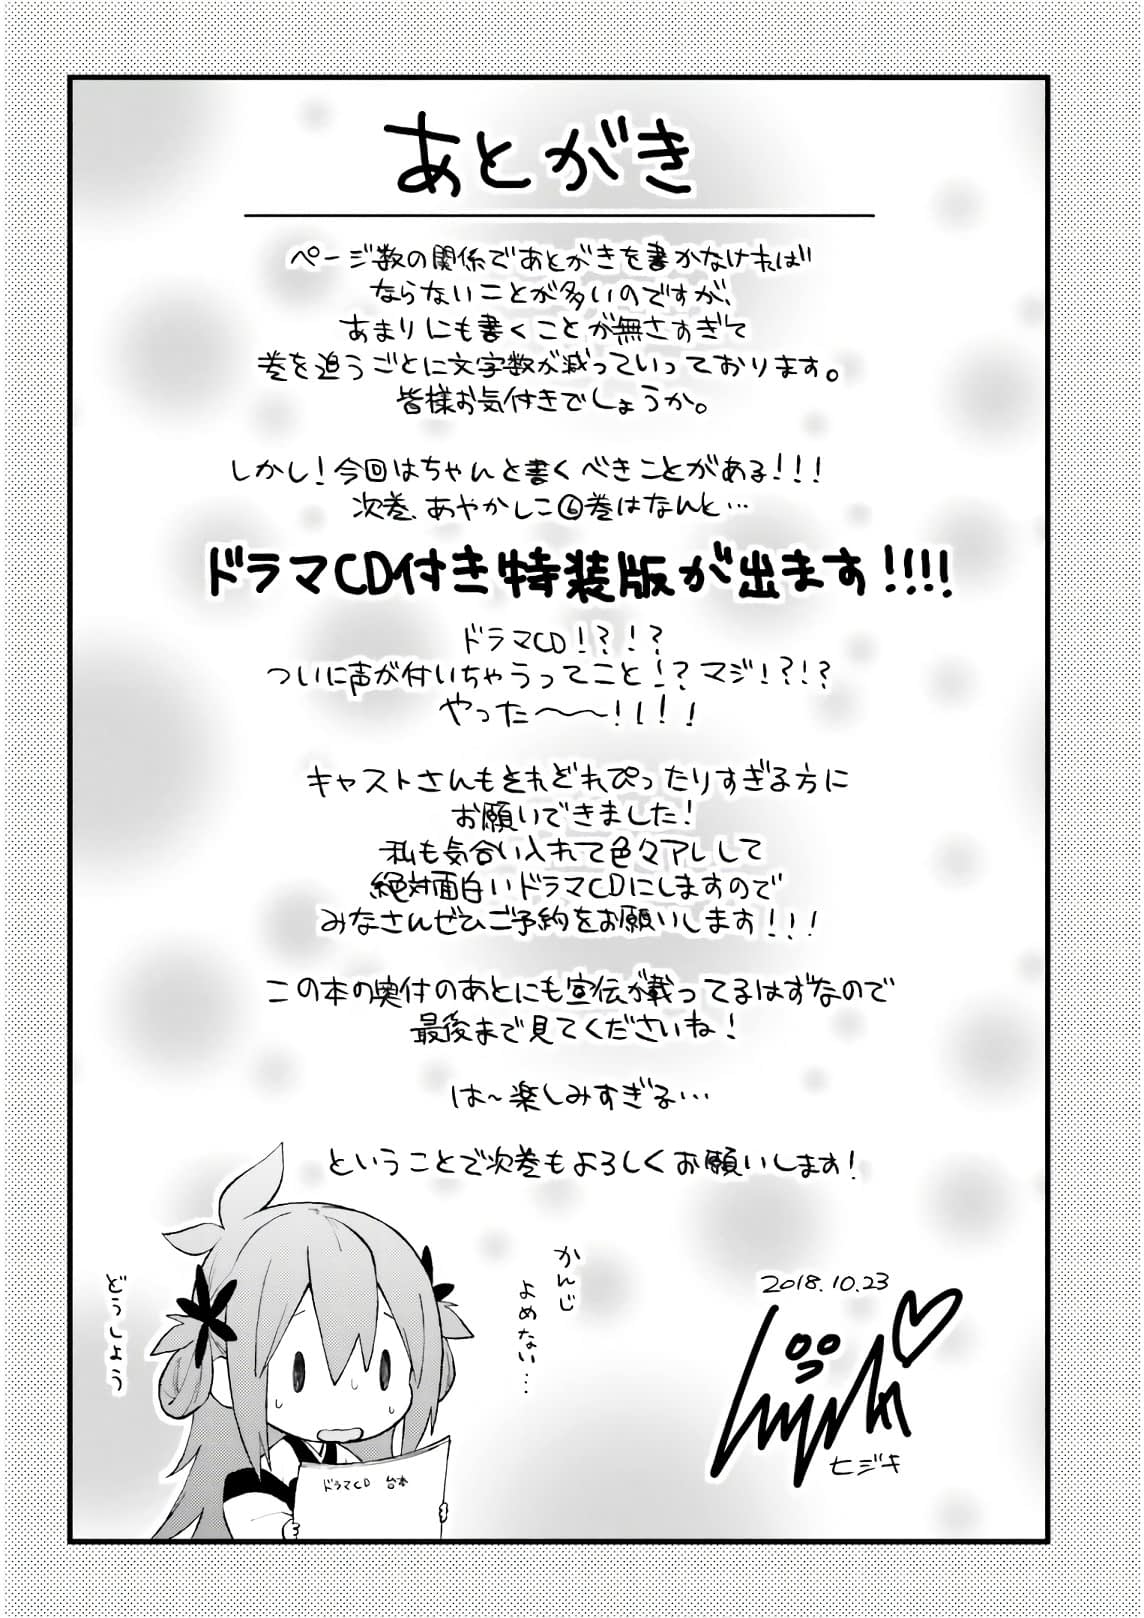 あとがき
ページ数の関係であとがきを書かなければ
ならないことが多いのですが、
あまりにも書くことが無さすぎて
巻を追うごとに文字数が減っていっております。
皆様お気付きでしょうか。
しかし!今回はちゃんと書くべきことがある!!!
次巻、あやかしこ⑥巻はなんと…
ドラマCD付き特装版が出ます!!!!
ドラマCD!?!?
ついに声が付いちゃうってこと!?マジ!?!?
やった〜〜!!!!
キャストさんもそれぞれぴったりすぎる方に
お願いできました!
私も気合い入れて色々アレして
絶対面白いドラマCDにしますので
みなさんぜひご予約をお願いします!!!
この本の奥付のあとにも宣伝が載ってるはずなので
最後まで見てくださいね!
は〜楽しみすぎる…
ということで次巻もよろしくお願いします!
かんじ
よめない…
どうしよう
ドラマCD 台本
2018.10.23
hijiki
ヒジキ